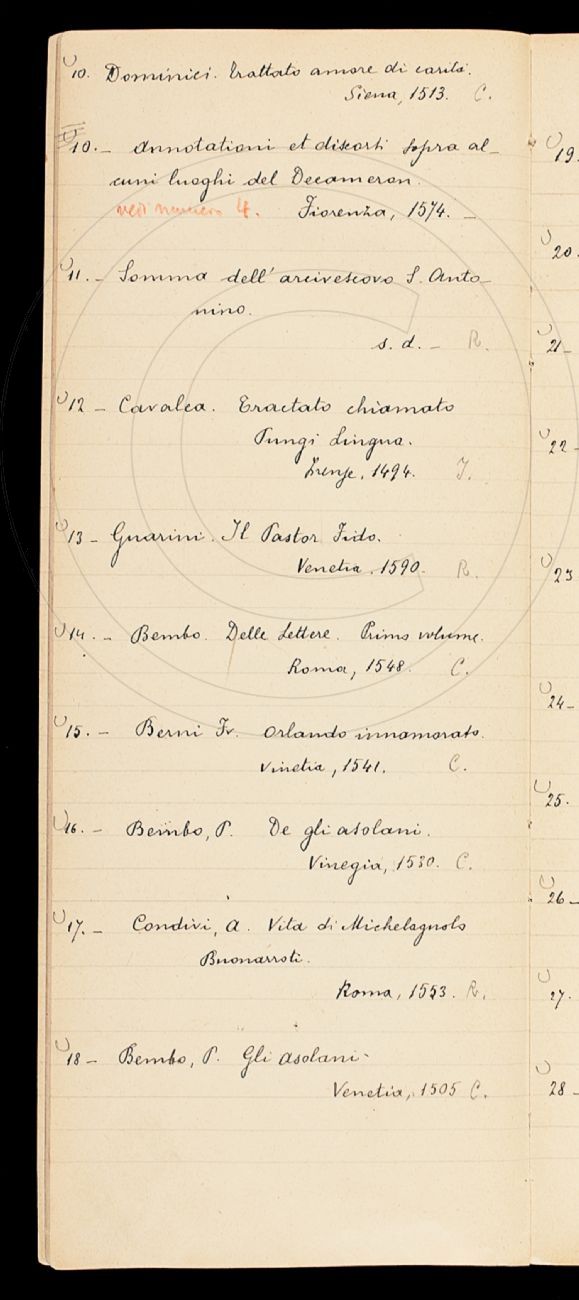 10. Dominici. Trattato amore di carità.
Siena, 1513. C.
10. - Annotationi et discorsi sopra al-
cuni luoghi del Decameron.
vedi numero 4. Fiorenza, 1574. -
11. - Somma dell'arcivescovo S. Anto-
nino.
s. d. - R.
12 - Cavalca. Tractato chiamato
Pungi Lingua.
Firenze, 1494. I.
13 - Guarini. Il Pastor Fido.
Venetia, 1590. R.
14. - Bembo. Delle Lettere. Primo volume.
Roma, 1548. C.
15. - Berni Fr. Orlando innamorato.
Vinetia, 1541. C.
16. - Bembo, P. De gli asolani.
Vinegia, 1530. C.
17. - Condivi, A. Vita di Michelagnolo
Buonarroti.
Roma, 1553. R.
18 - Bembo, P. Gli Asolani -
Venetia, 1505 C.
19.
20.
21 -
22 -
23
24 -
25.
26 -
27.
28 -